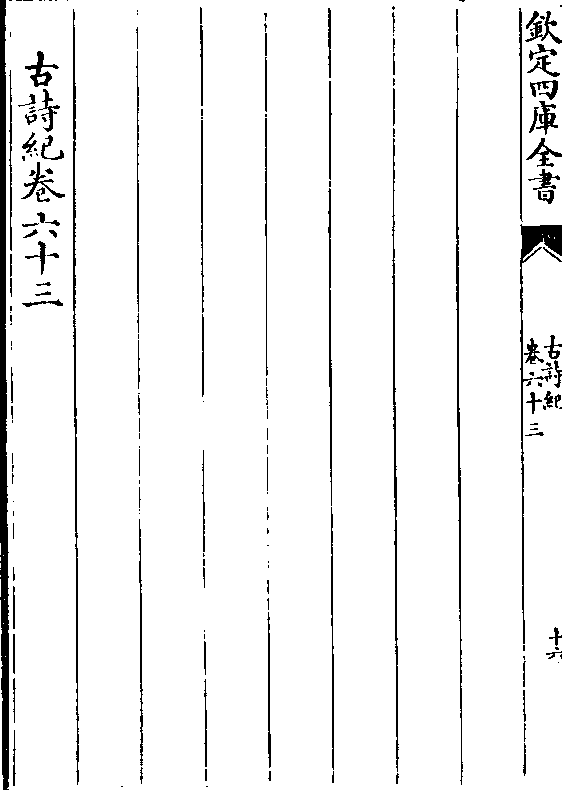 欽定四庫全書
古詩紀
卷六十三
十六
古詩紀卷六十三